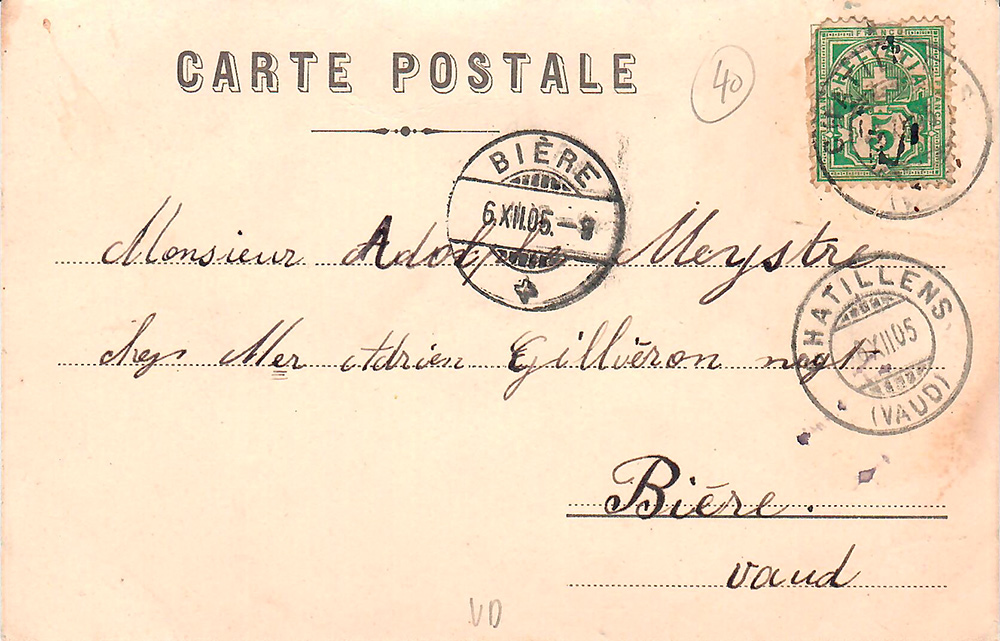 CARTE POSTALE
40
FRANCO
HELVETIA
5
BIÈRE
6.XII.05.-9
Monsieur Adolphe Meystre
CHATILLENS
XII.05
(VAUD)
chez Mer Adrien Gilliéron negt
Bière.
vaud
VD